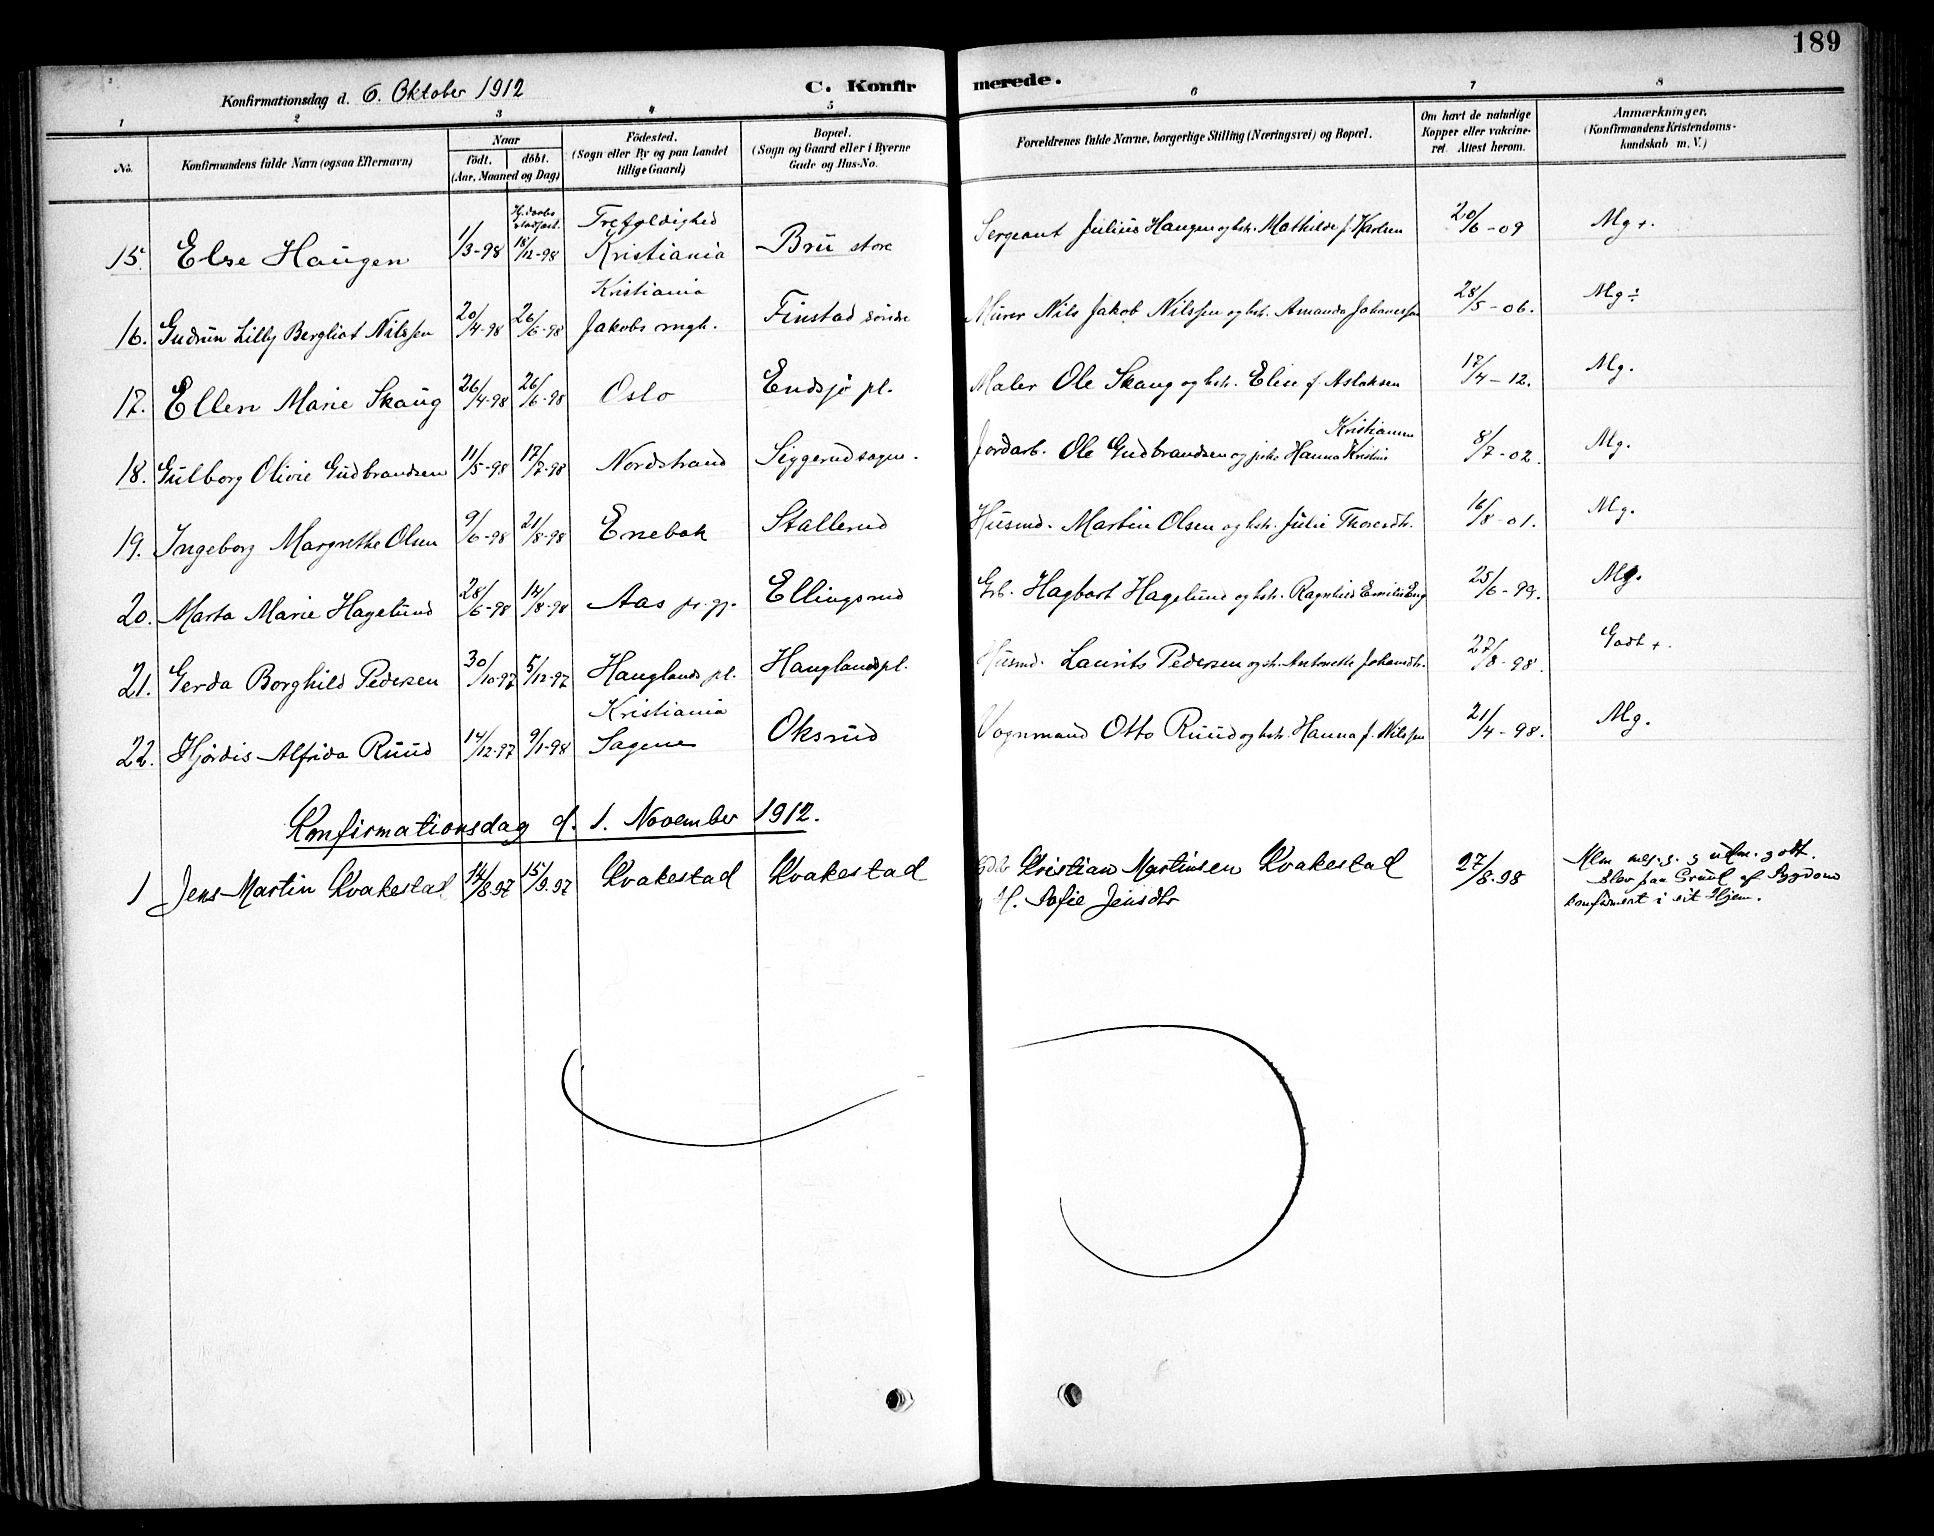 189
Konfirmationsdag d. 6. Oktober 1912 C. Konfirmerede.
1 2 3 4 5 6 7 8
No. Konfirmandens fulde Navn (ogsaa Efternavn) Naar født. døbt. (Aar, Maaned og Dag) Fødested. (Sogn eller By og paa Landet tillige Gaard) Bopæl. (Sogn og Gaard eller i Byerne Gade og Hus-No. Forældrenes fulde Navne, borgerlige Stilling (Næringsvei) og Bopæl. Om havt de naturlige Kopper eller vakcineret. Attest herom. Anmærkninger. (Konfirmandens Kristendomskundskab m. V.)
15. Else Haugen 1/3-98 Hj.daabs stadfæst. 18/12-98 Trefoldighed Kristiania Bru store Sergeant Julius Haugen og hst. Mathilde f. Karlsen 20/6-09 Mg+.
16. Gudrun Lilly Bergliot Nilssen 20/4-98 26/6-98 Kristiania Jakobs mgh. Finstad søndre Murer Nils Jakob Nilssen og hst. Amanda Johanessen 28/5-06. Mg÷
17. Ellen Marie Skaug 26/4-98 26/6-98 Oslo Endsjø pl. Maler Ole Skaug og hst. Elise f. Aslaksen 17/4-12. Mg.
18. Gulborg Olivie Gudbrandsen 11/5-98 17/7-98 Nordstrand Siggerud sogn. Jordarb. Ole Gudbrandsen og Hanna Kristin Kristiansen 8/7-02. Mg.
19. Ingeborg Margrethe Olsen 9/6-98 21/8-98 Enebak Stallerud Husmd. Martin Olsen og hst. Julie Thoresdtr. 16/8-01. Mg.
20. Marta Marie Hagelund 28/6-98 14/8-98 Aas pr.gj. Ellingsrud Grb. Hagbart Hagelund og hst. Ragnhild Emilie Eng 25/6-99. Mg.
21. Gerda Borghild Pedersen 30/10-97 5/12-97 Hauglands pl. Hauglandspl. Husmd. Laurits Pedersen og hst. Antonette Johansdtr. 27/8-98. Godt+.
22. Hjørdis Alfrida Ruud 14/12-97 9/1-98 Kristiania Sagene Oksrud Vognmand Otto Ruud og hst. Hanna f. Nilssen 21/4-98. Mg.
Konfirmationsdag d. 1. November 1912.
1 Jens Martin Kvakestad 14/8.97 15/9.97 Kvakestad Kvakestad Gdbr Kristian Martinsen Kvakestad 27/8.98
H. Sofie Jensdtr
Blev paa Grund af Sygdom
konfirmert i sit Hjem.